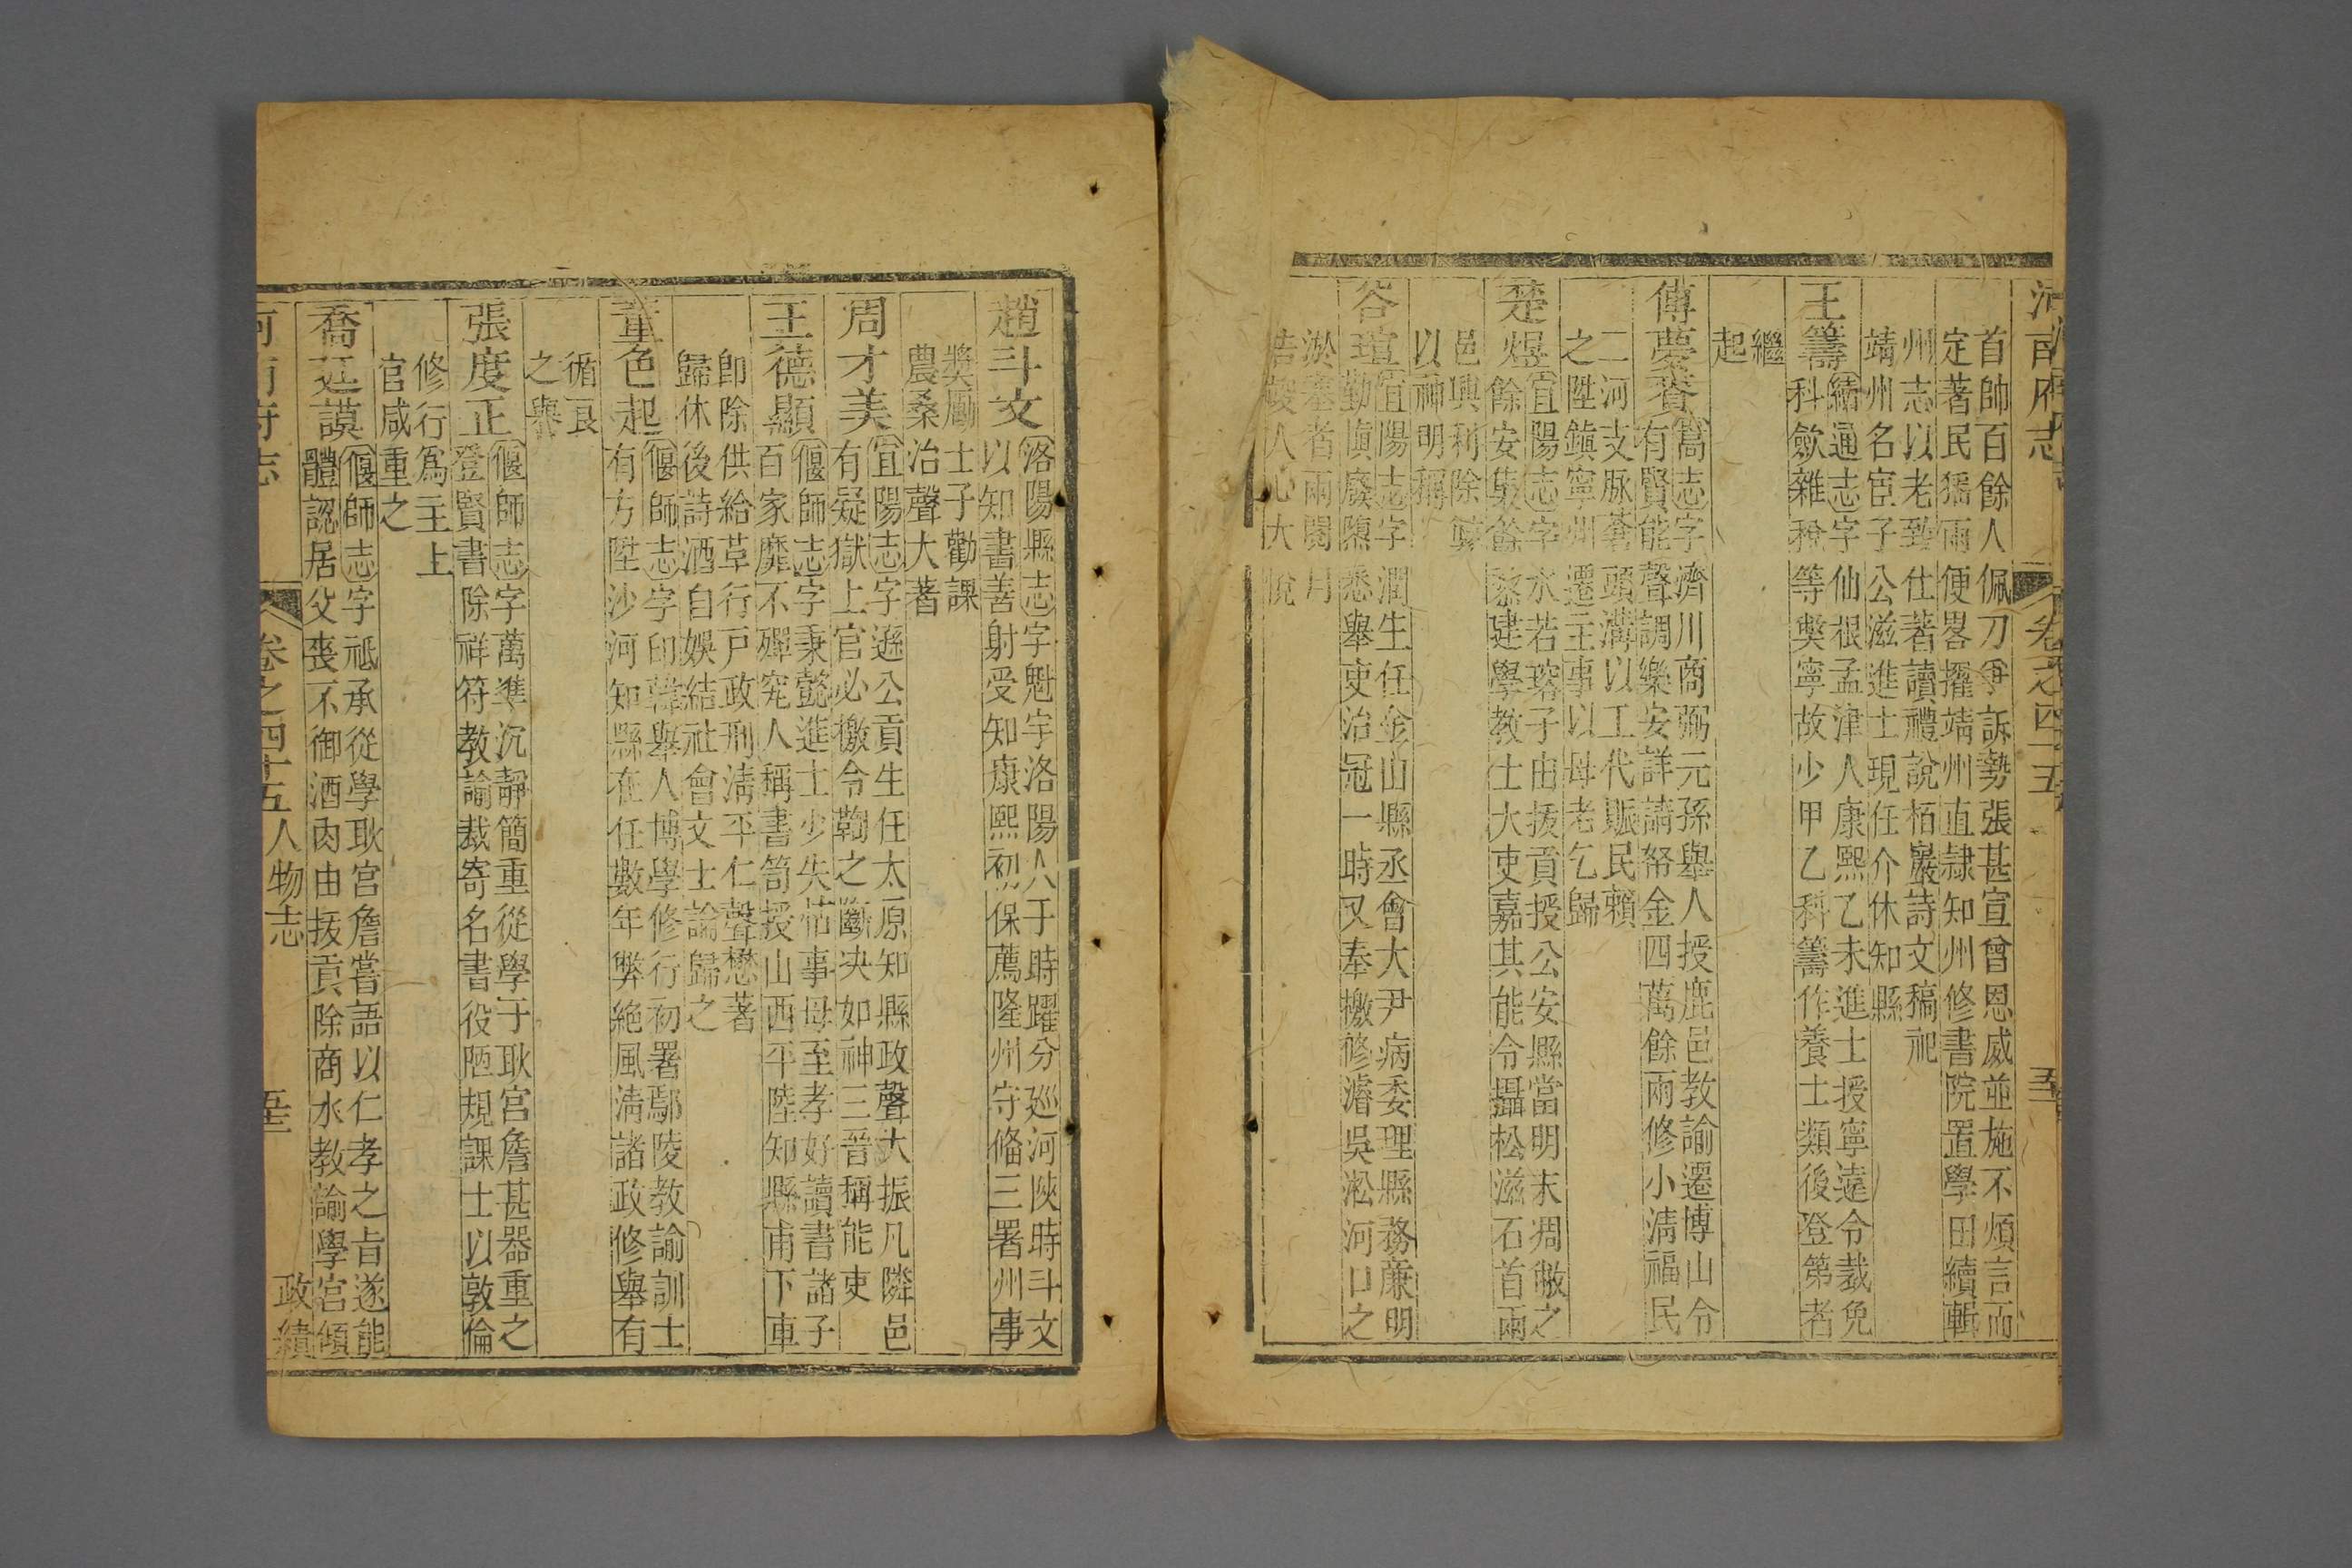 河南府志
卷之四十五
首帥百餘人佩刀爭訴勢張甚宣曾恩威並施不煩言而
定著民猺雨便畧擢靖州直隷知州修書院置學田續輯
州志以老致仕著讀禮說栢巖詩文稿祀
靖州名宦子公滋進士現任介休知縣
王籌
結通志字仙根孟津人康熙乙未進士授寧遠令裁免
科歛雜稅等獘寧故少甲乙科籌作養士類後登第者
繼
起
傅夢賚
嵩志字濟川商弼元孫舉人授鹿邑教諭遷博山令
有賢能聲調樂安詳請帑金四萬餘兩修小淸福民
二河支脉蒼頭溝以工代賑民賴
之陞鎮寧州遷主事以母老乞歸
楚煜
宜陽志字水若瑢子由拔貢授公安縣當明末凋敝之
餘安集餘黎建學教士大吏嘉其能令攝松滋石首兩
邑興利除獘
以神明稱
谷瑄
宜陽志字潤生任金山縣丞會大尹病委理縣務廉明
勤愼廢墜悉舉吏治冠一時又奉檄修濬吳淞河口之
淤塞者兩閱月
告竣人心大悅
趙斗文
洛陽縣志字魁宇洛陽人于時躍分巡河陝時斗文
以知書善射受知康熙初保薦隆州守俻三署州事
奬勵士子勸課
農桑治聲大著
周才美
宜陽志字遜公貢生任太原知縣政聲大振凡隣邑
有疑獄上官必檄令鞫之斷决如神三晉稱能吏
王德顯
偃師志字秉懿進士少失怙事母至孝好讀書諸子
百家靡不殫究人稱書笥授山西平陸知縣甫下車
卽除供給草行戸政刑淸平仁聲懋著
歸休後詩酒自娛結社會文士論歸之
董色起
偃師志字印韓舉人博學修行初署鄢陵教諭訓士
有方陞沙河知縣在任數年弊絶風淸諸政修舉有
循良
之譽
張度正
偃師志字萬凖沉靜簡重從學于耿宮詹甚器重之
登賢書除祥符教諭裁寄名書役陋規課士以敦倫
修行爲主上
官咸重之
喬廷謨
偃師志字祗承從學耿宮詹嘗語以仁孝之旨遂能
體認居父喪不御酒肉由拔貢除商水教諭學宮傾
河南府志
卷之四十五
人物志
政績